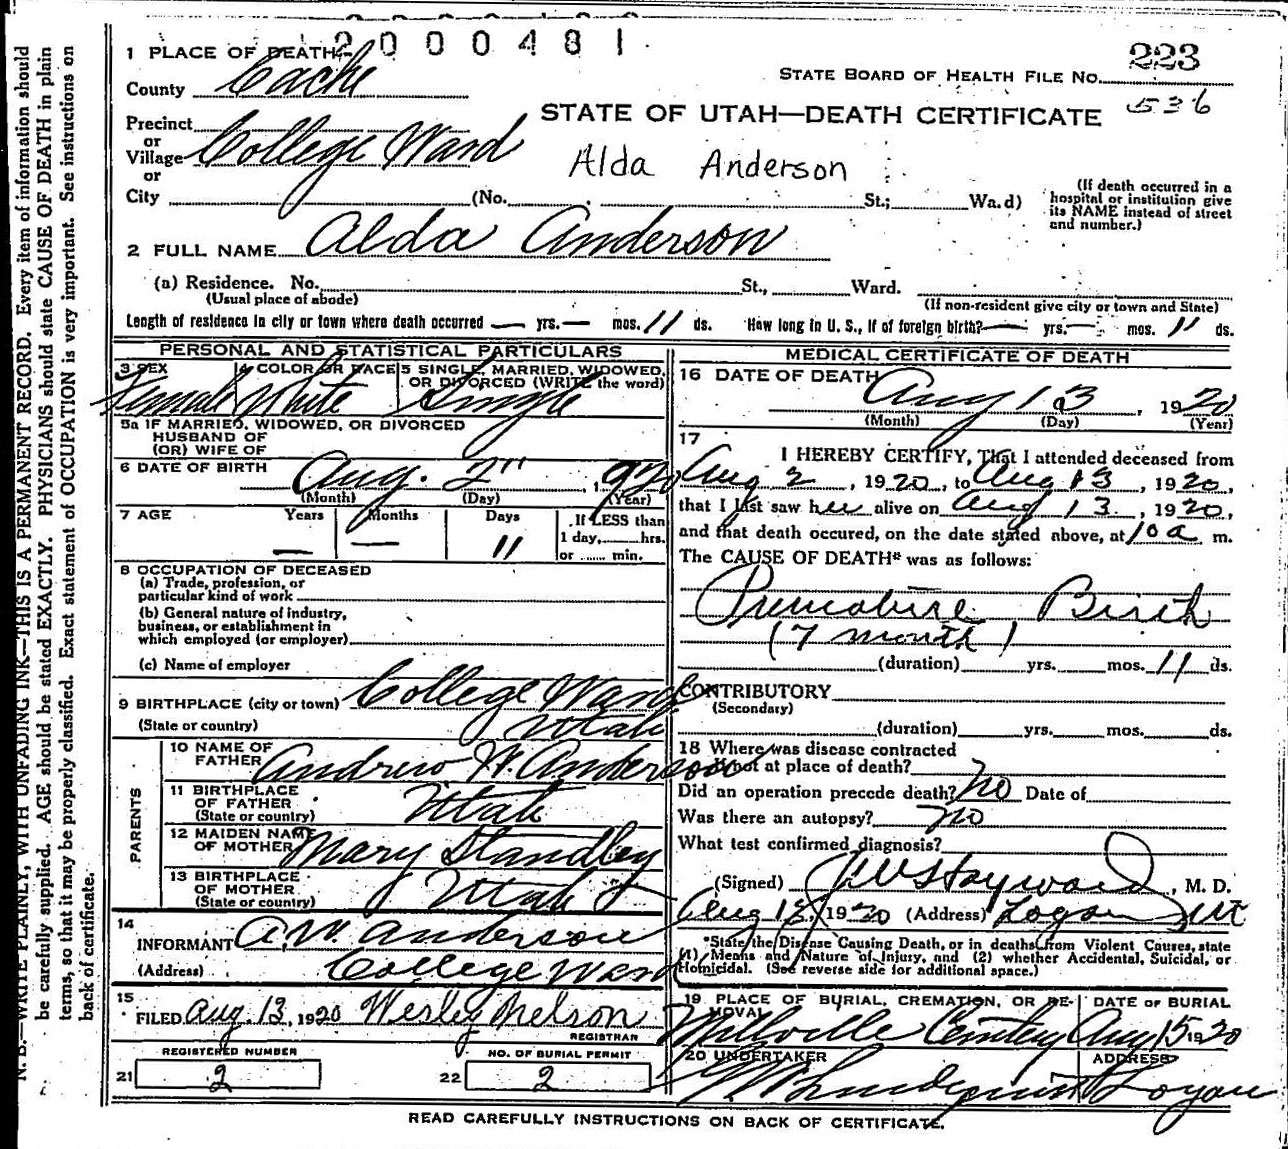 2000481
1 PLACE OF DEATH
223
STATE BOARD OF HEALTH FILE No.
County Cache
536
STATE OF UTAH—DEATH CERTIFICATE
Precinct
or
Village College Ward
Alda Anderson
or
City (No. St.; Wa.d)
(If death occurred in a
hospital or institution give
its NAME instead of street
and number.)
2 FULL NAME Alda Anderson
(a) Residence. No. St., Ward.
(Usual place of abode)
(If non-resident give city or town and State)
Length of residence in city or town where death occurred — yrs. — mos. 11 ds. How long in U. S., if of foreign birth? — yrs. — mos. 11 ds.
PERSONAL AND STATISTICAL PARTICULARS
3 SEX
Female
4 COLOR OR RACE
White
5 SINGLE, MARRIED, WIDOWED,
OR DIVORCED (WRITE the word)
Single
5a IF MARRIED, WIDOWED, OR DIVORCED
HUSBAND OF
(OR) WIFE OF
6 DATE OF BIRTH Aug. 2" , 1920
(Month) (Day) (Year)
7 AGE Years Months Days
— — 11
If LESS than
1 day, hrs.
or min.
8 OCCUPATION OF DECEASED
(a) Trade, profession, or
particular kind of work
(b) General nature of industry,
business, or establishment in
which employed (or employer)
(c) Name of employer
9 BIRTHPLACE (city or town) College Ward
(State or country) Utah
PARENTS
10 NAME OF
FATHER Andrew W. Anderson
11 BIRTHPLACE
OF FATHER
(State or country) Utah
12 MAIDEN NAME
OF MOTHER Mary Standley
13 BIRTHPLACE
OF MOTHER
(State or country) Utah
14
INFORMANT A. W. Anderson
(Address) College Ward
15
FILED Aug. 13, 1920 Wesley Nelson
REGISTRAR
REGISTERED NUMBER
21 2
NO. OF BURIAL PERMIT
22 2
MEDICAL CERTIFICATE OF DEATH
16 DATE OF DEATH
Aug 13, 1920
(Month) (Day) (Year)
17
I HEREBY CERTIFY, That I attended deceased from
Aug 2, 1920, to Aug 13, 1920,
that I last saw her alive on Aug 13, 1920,
and that death occured, on the date stated above, at 10 a m.
The CAUSE OF DEATH* was as follows:
Premature Birth
(7 month)
(duration) yrs. mos. 11 ds.
CONTRIBUTORY
(Secondary)
(duration) yrs. mos. ds.
18 Where was disease contracted
if not at place of death?
Did an operation precede death? No Date of
Was there an autopsy? no
What test confirmed diagnosis?
(Signed) Hayward, M. D.
Aug 1920 (Address) Logan Ut
*State the Disease Causing Death, or in deaths from Violent Causes, state
(1) Means and Nature of Injury, and (2) whether Accidental, Suicidal, or
Homicidal. (See reverse side for additional space.)
19 PLACE OF BURIAL, CREMATION, OR RE-
MOVAL
Millville Cemtery
DATE OF BURIAL
Aug 15 1920
20 UNDERTAKER
ADDRESS
Logan
READ CAREFULLY INSTRUCTIONS ON BACK OF CERTIFICATE.
N. B.—WRITE PLAINLY, WITH UNFADING INK—THIS IS A PERMANENT RECORD. Every item of information should
be carefully supplied. AGE should be stated EXACTLY. PHYSICIANS should state CAUSE OF DEATH in plain
terms, so that it may be properly classified. Exact statement of OCCUPATION is very important. See instructions on
back of certificate.